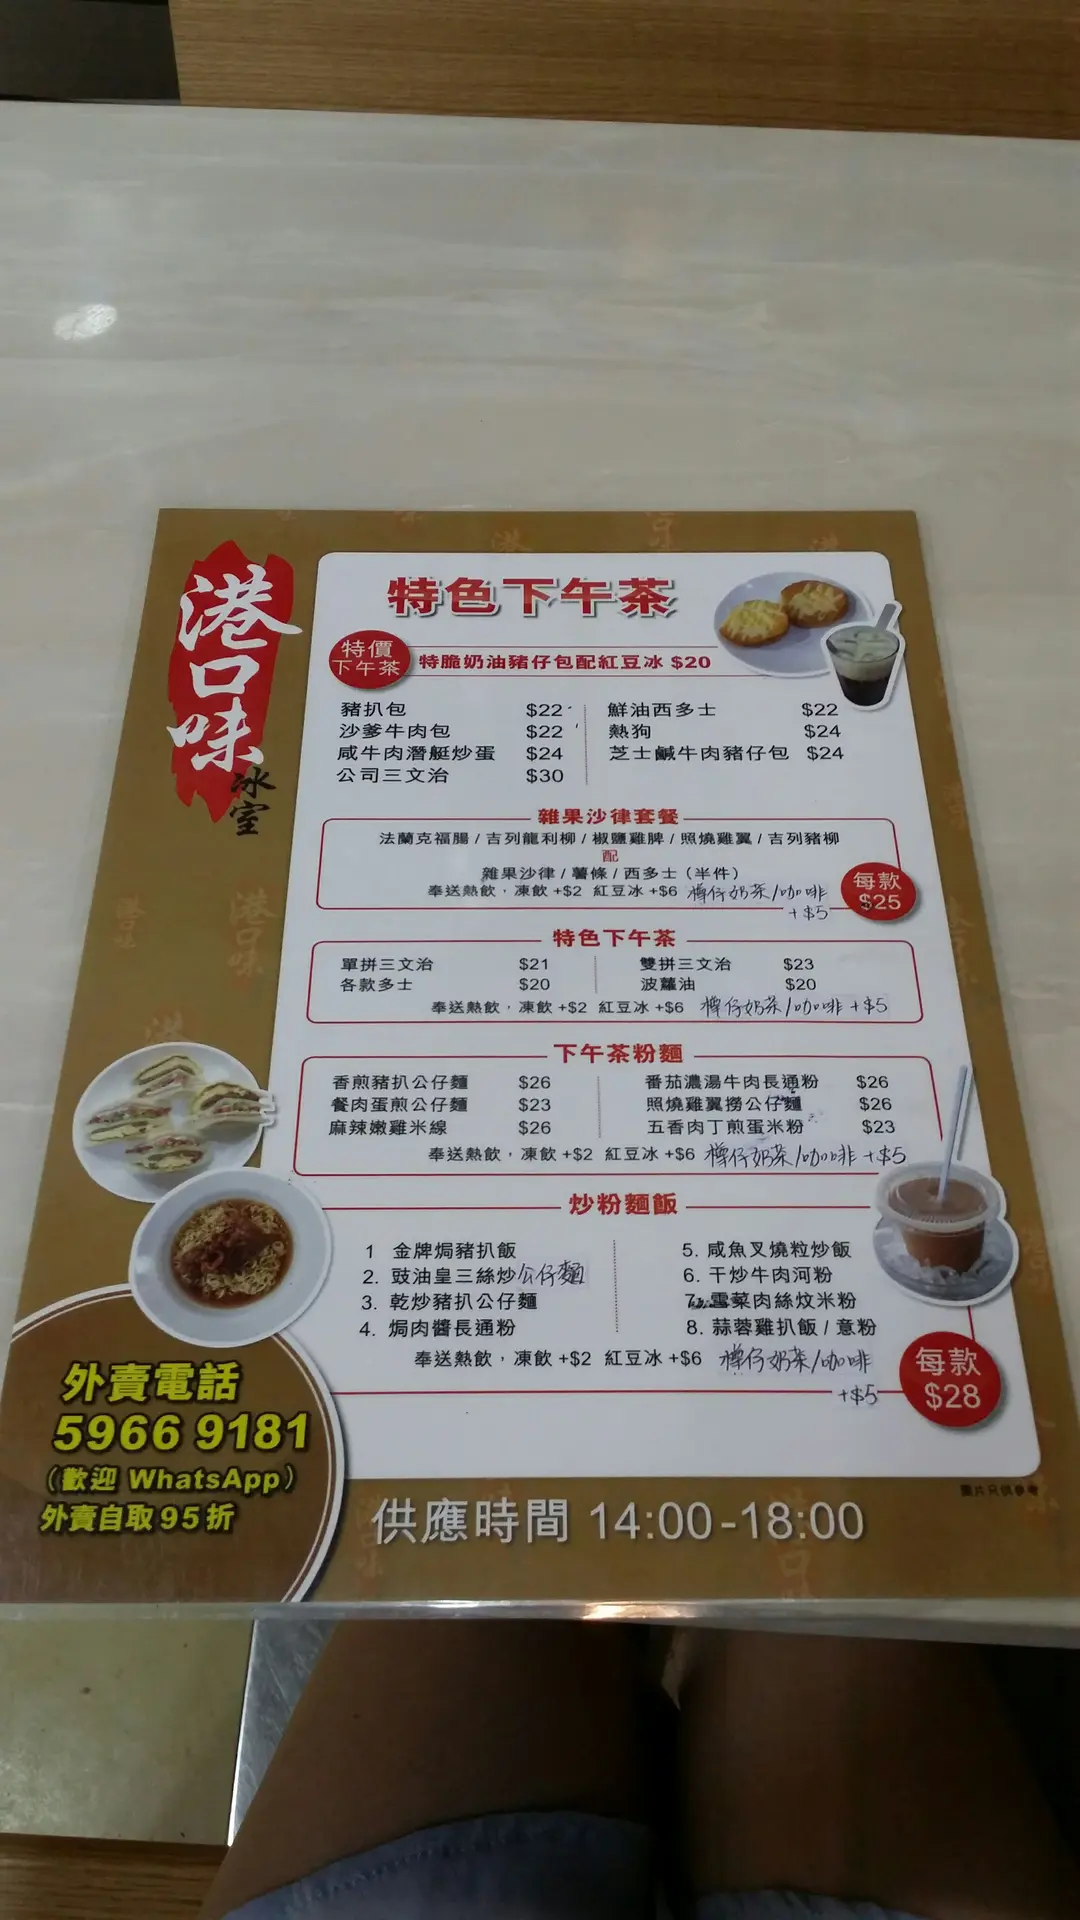 港口味
冰室
特色下午茶
特價
下午茶
特脆奶油豬仔包配紅豆冰 $20
豬扒包 $22
沙爹牛肉包 $22
咸牛肉潛艇炒蛋 $24
公司三文治 $30
鮮油西多士 $22
熱狗 $24
芝士鹹牛肉豬仔包 $24
雜果沙律套餐
法蘭克福腸 / 吉列龍利柳 / 椒鹽雞脾 / 照燒雞翼 / 吉列豬柳
配
雜果沙律 / 薯條 / 西多士 (半件)
奉送熱飲，凍飲 +$2 紅豆冰 +$6 樽仔奶茶/咖啡
+$5
每款
$25
特色下午茶
單拼三文治 $21
各款多士 $20
雙拼三文治 $23
波蘿油 $20
奉送熱飲，凍飲 +$2 紅豆冰 +$6 樽仔奶茶/咖啡 +$5
下午茶粉麵
香煎豬扒公仔麵 $26
餐肉蛋煎公仔麵 $23
麻辣嫩雞米線 $26
番茄濃湯牛肉長通粉 $26
照燒雞翼撈公仔麵 $26
五香肉丁煎蛋米粉 $23
奉送熱飲，凍飲 +$2 紅豆冰 +$6 樽仔奶茶/咖啡 +$5
炒粉麵飯
1 金牌焗豬扒飯
2. 豉油皇三絲炒公仔麵
3. 乾炒豬扒公仔麵
4. 焗肉醬長通粉
5. 咸魚叉燒粒炒飯
6. 干炒牛肉河粉
7. 雪菜肉絲炆米粉
8. 蒜蓉雞扒飯 / 意粉
奉送熱飲，凍飲 +$2 紅豆冰 +$6 樽仔奶茶/咖啡
+$5
每款
$28
外賣電話
5966 9181
(歡迎 WhatsApp)
外賣自取 95 折
圖片只供參考
供應時間 14:00-18:00